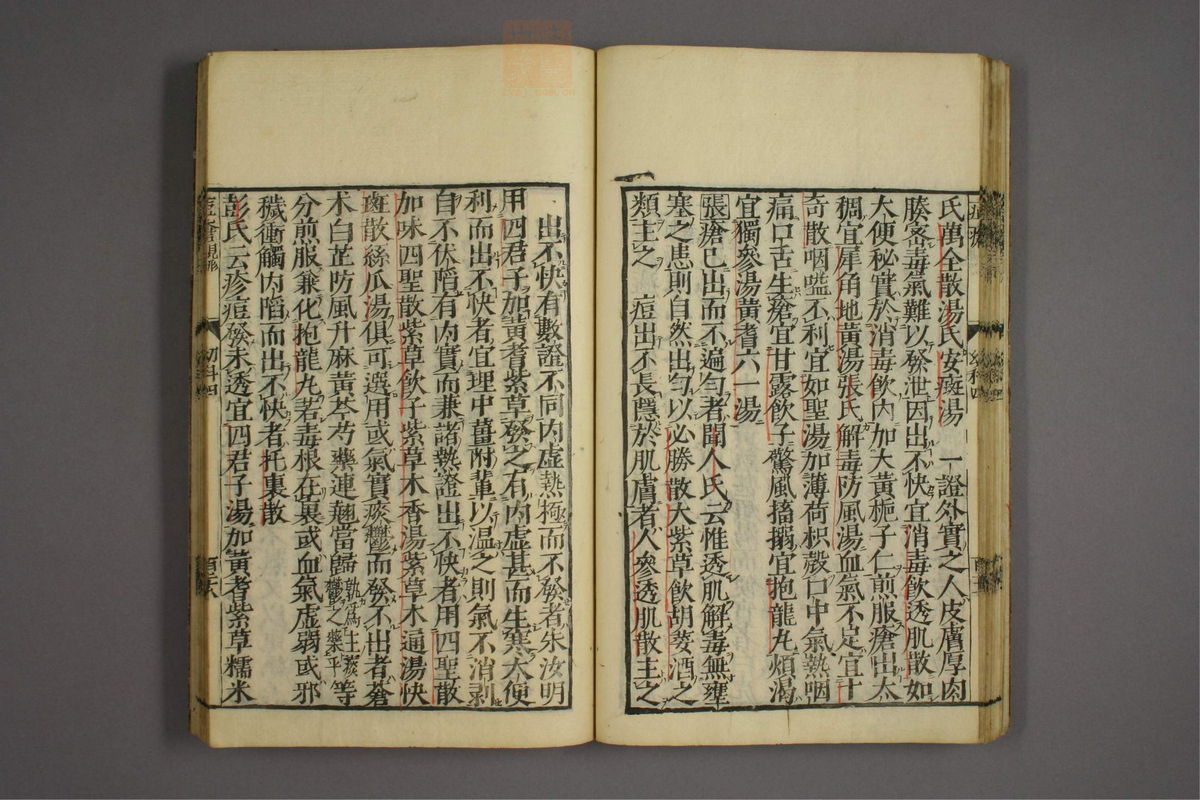 氏萬全散湯氏安斑湯　一證外實之人皮膚厚肉
腠宻毒氣難以發泄因出不快宜消毒飲透肌散如
大便秘實於消毒飲内加大黃梔子仁煎服瘡出太
稠宜犀角地黃湯張氏解毒防風湯血氣不足宜十
奇散咽嗌不利宜如聖湯加薄荷枳殼口中氣熱咽
痛口舌生瘡宜甘露飲子驚風搐搦宜抱龍丸煩渴
宜獨參湯黃耆六一湯
張瘡已出而不遍勻者聞人氏云惟透肌解毒無壅
塞之患則自然出勻以必勝散大紫草飲胡荽酒之
類主之　痘出不長隱於肌膚者人參透肌散主之
幼科四
出不快有數證不同内虛熱極而不發者朱汝明
用四君子加黃耆紫草發之有内虛甚而生寒大便
利而出不快者宜理中薑附輩以温之則氣不消剥
自不伏陷有内實而兼諸熱證出不快者用四聖散
加味四聖散紫草飲子紫草木香湯紫草木通湯快
斑散絲瓜湯俱可選用或氣實痰鬱而發不出者蒼
术白芷防風升麻黃芩芍藥連翹當歸
孰爲主痰
鬱之藥平
等
分煎服兼化抱龍丸若毒根在裏或血氣虛弱或邪
穢衝觸内陷而出不快者托裏散
彭氏云疹痘發未透宜四君子湯加黃耆紫草糯米
幼科四